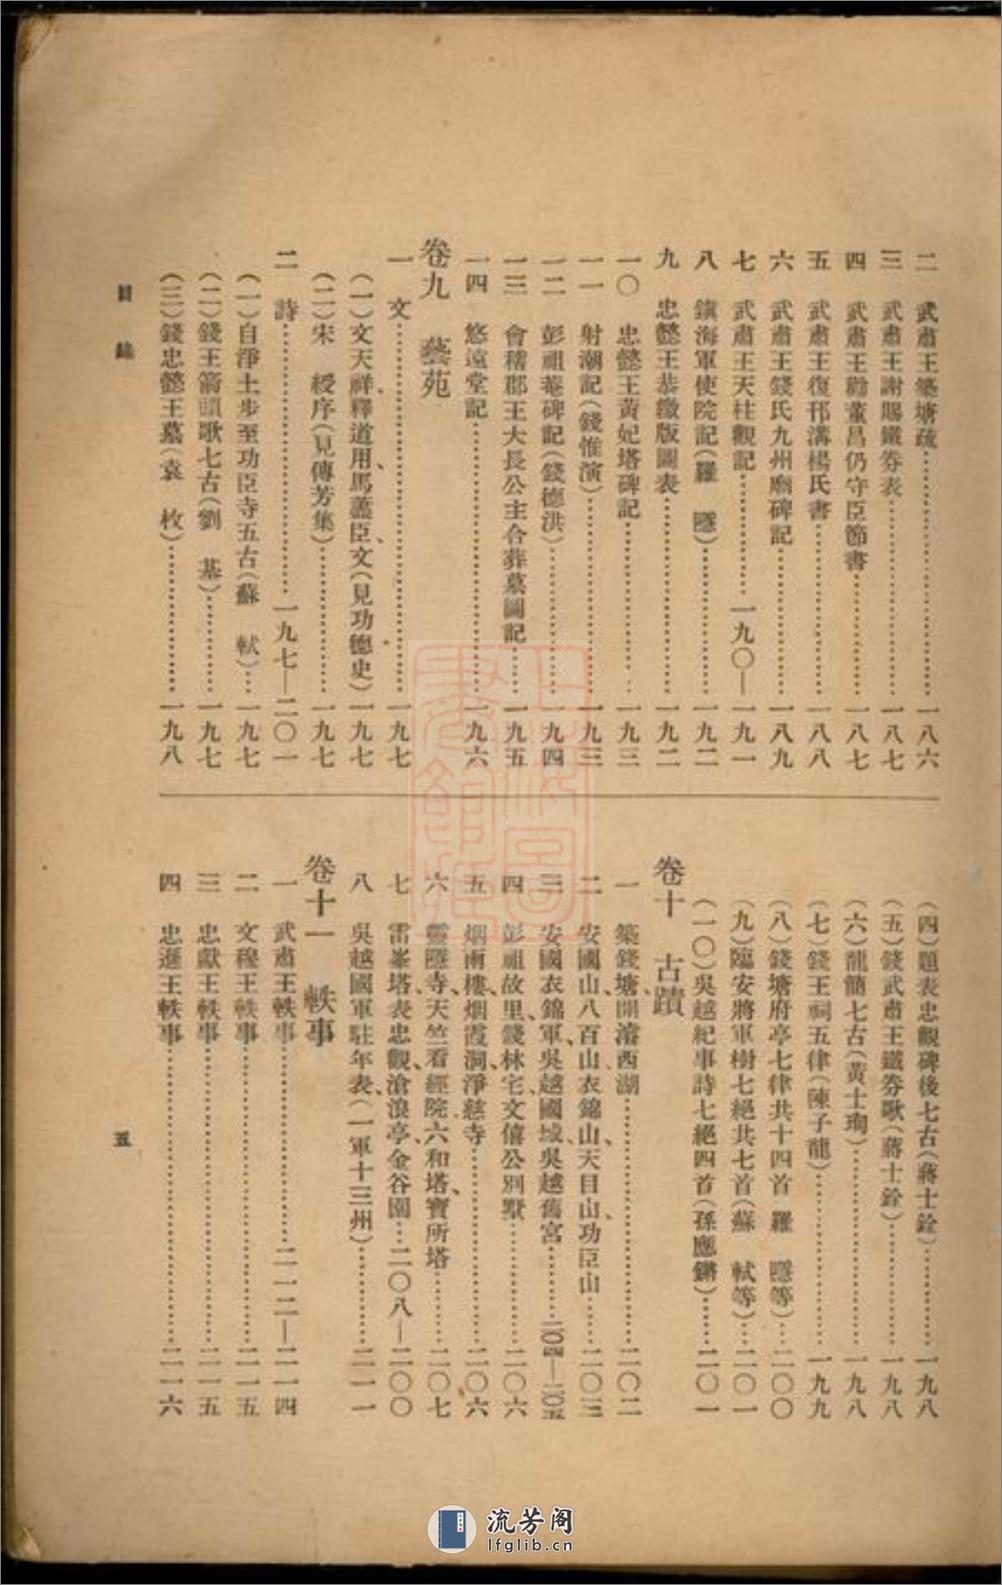 二 武肅王築塘疏……一八六
三 武肅王謝賜鐵券表……一八七
四 武肅王勸董昌仍守臣節書……一八七
五 武肅王復邗溝楊氏書……一八八
六 武肅王錢氏九州廟碑記……一八九
七 武肅王天柱觀記……一九〇—一九一
八 鎮海軍使院記(羅 隱)……一九二
九 忠懿王恭繳版圖表……一九二
一〇 忠懿王黃妃塔碑記……一九三
一一 射潮記(錢惟演)……一九三
一二 彭祖菴碑記(錢德洪)……一九四
一三 會稽郡王大長公主合葬墓圖記……一九五
一四 悠遠堂記……一九六
卷九 藝苑
一 文……一九七
(一)文天祥、釋道用、馬藎臣、文(見功德史)一九七
(二)宋 綬序(見傳芳集)……一九七
二 詩……一九七—二〇一
(一)自淨土步至功臣寺五古(蘇 軾)…一九七
(二)錢王箭頭歌七古(劉 基)……一九七
(三)錢忠懿王墓(袁 枚)……一九八
(四)題表忠觀碑後七古(蔣士銓)……一九八
(五)錢武肅王鐵券歌(蔣士銓)……一九八
(六)龍簡七古(黃士珣)……一九八
(七)錢王祠五律(陳子龍)……一九九
(八)錢塘府亭七律共十四首 羅 隱等)…二〇〇
(九)臨安將軍樹七絕共七首(蘇 軾等)…二〇一
(一〇)吳越紀事詩七絕四首(孫應鏘)……二〇一
卷十 古蹟
一 築錢塘、開濬西湖……二〇二
二 安國山、八百山、衣錦山、天目山、功臣山……二〇三
三 安國衣錦軍、吳越國城、吳越舊宮……二〇四—二〇五
四 彭祖故里、錢林宅、文僖公別墅……二〇六
五 烟雨樓、烟霞洞、淨慈寺……二〇六
六 靈隱寺、天竺看經院、六和塔、寶所塔……二〇七
七 雷峯塔、表忠觀、滄浪亭、金谷園…二〇八—二〇〇
八 吳越國軍駐年表(一軍十三州)……二一一
卷十一 軼事
一 武肅王軼事……二一二—二一四
二 文穆王軼事……二一五
三 忠獻王軼事……二一五
四 忠遜王軼事……二一六
目錄
五
上海圖書館藏
流芳阁
lfglib.cn